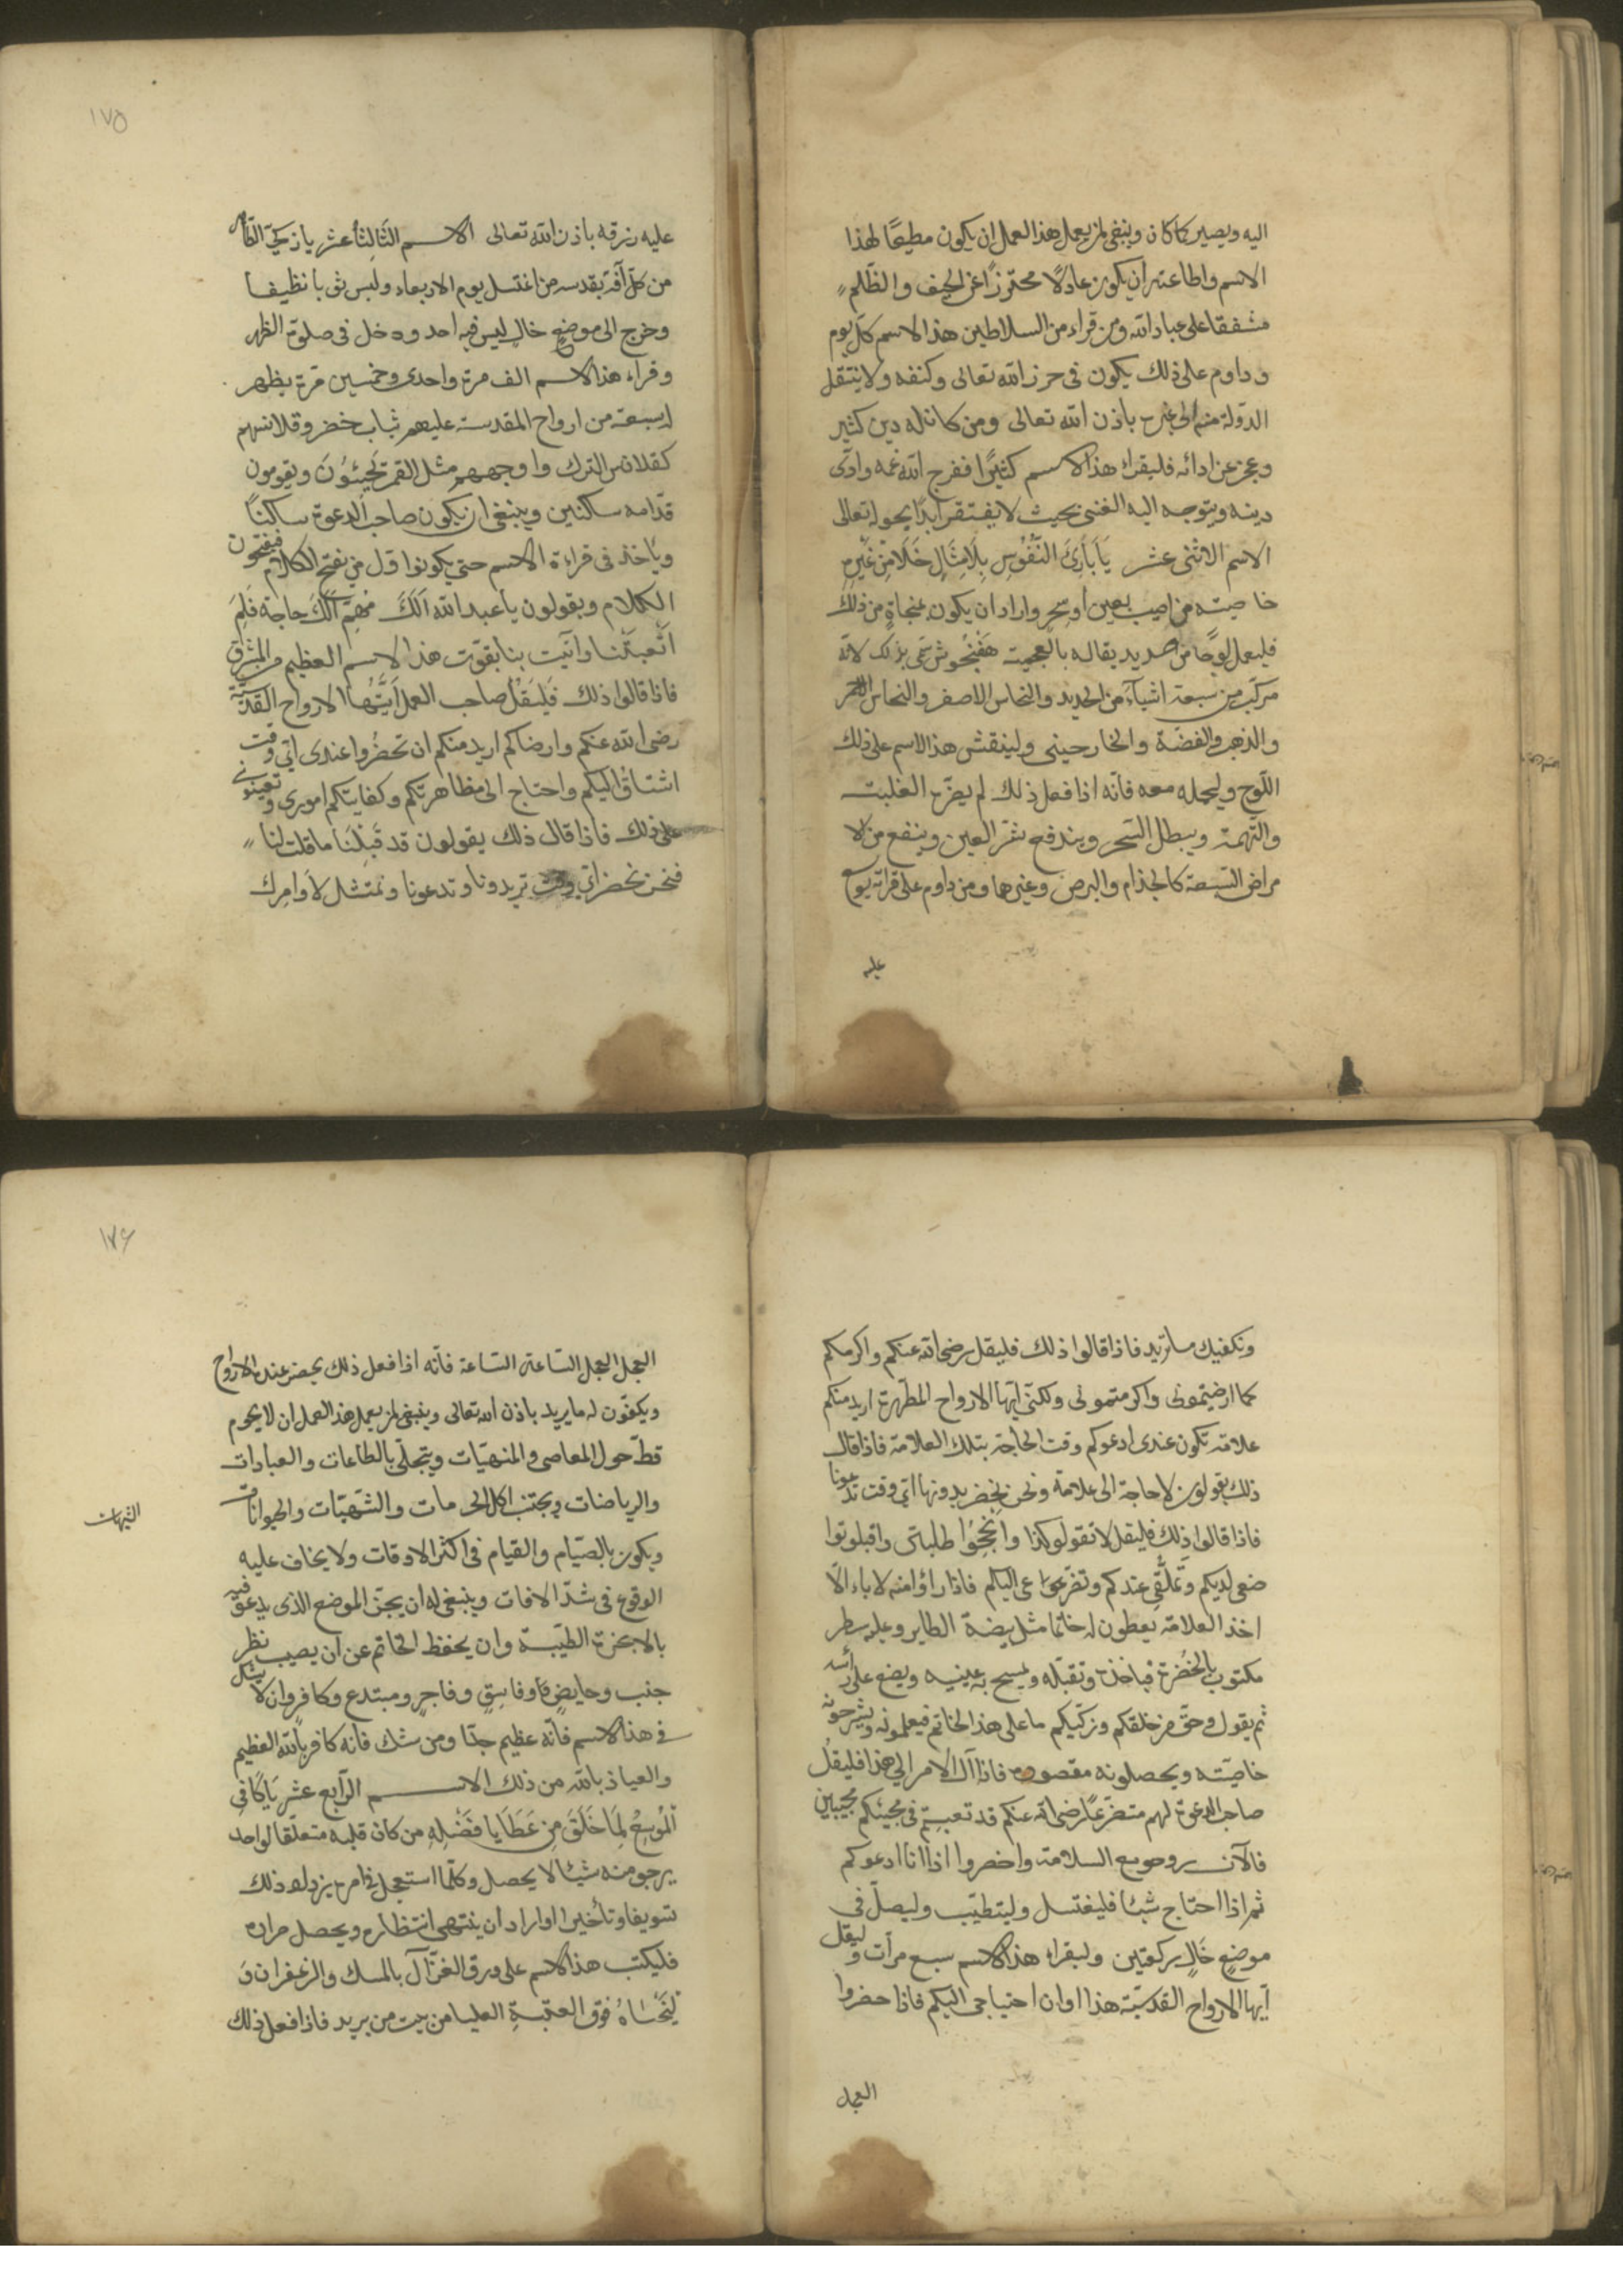 اليه ويصير كما كان وينبغى لمن يعمل هذا العمل ان يكون مطيعًا لهذا
الاسم واطاعته ان يكون عادلًا محترزًا عن الحيف والظّلم
مشفقا على عباد الله ومن قراء من السلاطين هذا الاسم كلّ يوم
وداوم على ذلك يكون فى حرز الله تعالى وكنفه ولا ينتقل
الدّولة منه الى غيره باذن الله تعالى ومن كان له دين كثير
وعجز عن ادائه فليقراء هذا الاسم كثيرًا ففرج الله غمه وادّى
دينه ويتوجه اليه الغنى بحيث لا يفتقر ابدًا بحوله تعالى
الاسم الاثنى عشر يَا بَارِئَ النُّفُوسِ بِلَا مِثَالٍ خَلَا مِنْ غَيْرِهِ
خاصيته من اصيب بعين او سحر واراد ان يكون بمنجاة من ذلك
فليعمل لوحًا من حديد يقال له بالعجمية هَفْتْجُوش سمّى بذلك لانّه
مركّب من سبعة اشيآء من الحديد والنحاس الاصفر والنحاس الاحمر
والذهب والفضّة والخارصينى ولينقش هذا الاسم على ذلك
اللّوح وليحمله معه فانّه اذا فعل ذلك لم يضرّه الغلبت
والتّهمة ويبطل السّحر ويندفع شرّ العين وينفع من الا
مراض السّبعة كالجذام والبرص وغيرها ومن داوم على قراته يوسّع
عليه
١٧٥
عليه رزقه باذن الله تعالى الاســم الثَالِثَ عشر يا زكىّ الطّاهر
من كلّ آفة بقدسه من اغتسل يوم الاربعاء ولبس ثيابا نظيفـا
وخرج الى موضعٍ خالٍ ليس فيه احد ودخل فى صلوة الظهر
وقراء هذا الاسم الف مرة واحدى وخمسين مرة يظهر
له سبعة من ارواح المقدسة عليهم ثياب خضر وقلانسهم
كقلانس الترك واوجههم مثل القمر يَجِيئُونَ ويقومون
قدّامه ساكتين وينبغى ان يكون صاحب الدعوة ساكتاً
وياخذ فى قراءة الاسم حتى يكونوا اوّل من يفتح الكلام فيفتحون
الكلام ويقولون يا عبد الله اَلَكَ مُهِمٌّ اَلَكَ حاجة فَلِمَ
اَتْعَبْتَنا واتيت بنا بقوّت هذا الاسم العظيم من المشرق
فاذا قالوا ذلك فَليَقُلْ صاحب العمل اَيَّتُها الارواح القدسيّة
رضى الله عنكم وارضاكم اريد منكم ان تحضُروا عندى اىّ وقت
اشتاقُ اليكم واحتاج الى مظاهرتكم وكفايتكم امورى وتعينونى
على ذلك فاذا قال ذلك يقولون قد قَبِلْنَا ما قلت لنا
فنحن نحضر اىّ وقت تريدونا وتدعونا ونمتثل لاَوامِرك
ونكفيك ما تريد فاذا قالوا ذلك فليقل رضى الله عنكم واكرمكم
كما ارضيتمونى واكرمتمونى ولكنّى ايّها الارواح المطهّرة اريد منكم
علامة تكون عندى ادعوكم وقت الحاجة بتلك العلامة فاذا قال
ذلك يقولون لا حاجة الى علامة ونحن نحضر بدونها اىّ وقت تدعونا
فاذا قالوا ذلك فليقل لا تقولو كذا وانْجِحُوا طلبتى واقبلوا توا
ضعى لديكم وتَمَلُّقِى عندكم وتضرّعى اليكم فاذا راوا منه لاباء الّا
اخذ العلامة يعطون له خاتما مثل بيضة الطاير وعليه سطر
مكتوب بالخُضرة فياخذه وتقبّله ويمسح به عينيه ويضع على رأسه
ثم يقول وحقّ من خلقكم وزكّيكم ما على هذا الخاتم فيعلمونه ويشرحونه
خاصيّته ويحصلونه مقصوده فاذا آل الامر الى هذا فليقلُ
صاحب الدعوة لهم متضرّعًا رضى الله عنكم قد تعبتم فى مجيئكم مجيبين
فالآن روحو مع السلامة واحضروا اذا انا ادعوكم
ثم اذا احتاج شيئا فليغتسل وليتطيّب وليصلّ فى
موضعٍ خَالٍ ركعتين وليقراء هذا الاسم سبع مرّات وليقل
ايّها الارواح القدسيّة هذا اوان احتياجى اليكم فاذا حضروا
العجل
١٧٦
العجل العجل السّاعة السّاعة فانّه اذا فعل ذلك يحضر عنده الارواح
ويكفون له ما يريد باذن الله تعالى وينبغى لمن يعمل هذا العمل ان لا يحوم
قطّ حول المعاصى والمنهيّات ويتجلّى بالطاعات والعبادات
والرياضات ويجتنب اكل الحرمات والشّهيّات والحيوانات
الشبهات
ويكون بالصّيام والقيام فى اكثر الاوقات ولا يخاف عليه
الوقوع فى شدّ الافات وينبغى له ان يجنّ الموضع الذى يدعو فيه
بالابخرة الطيّبة وان يحفظ الخاتم عن ان يصيب نظر
جنب وحايضٍ وفاسِقٍ وفاجرٍ ومبتدع وكافر وان لا يشك
فى هذا الاسم فانّه عظيم جدّا ومن شك فانّه كافر بالله العظيم
والعياذ بالله من ذلك الاســـم الرّابع عشر يَا كَافِى
اَلْمُوسِعُ لِمَا خَلَقَ مِن عَطَايا فَضْلِهِ من كان قلبه متعلّقا لواحد
يرجو منه شيئا لا يحصل وكلّما استعجل فى امره يزداد ذلك
تسويفا وتأخيرا او اراد ان ينتهى انتظاره ويحصل مراده
فليكتب هذا الاسم على ورق الغزّال بالمسك والزعفران وَ
فوق العتبة العليا من بيت من يريد فاذا فعل ذلك